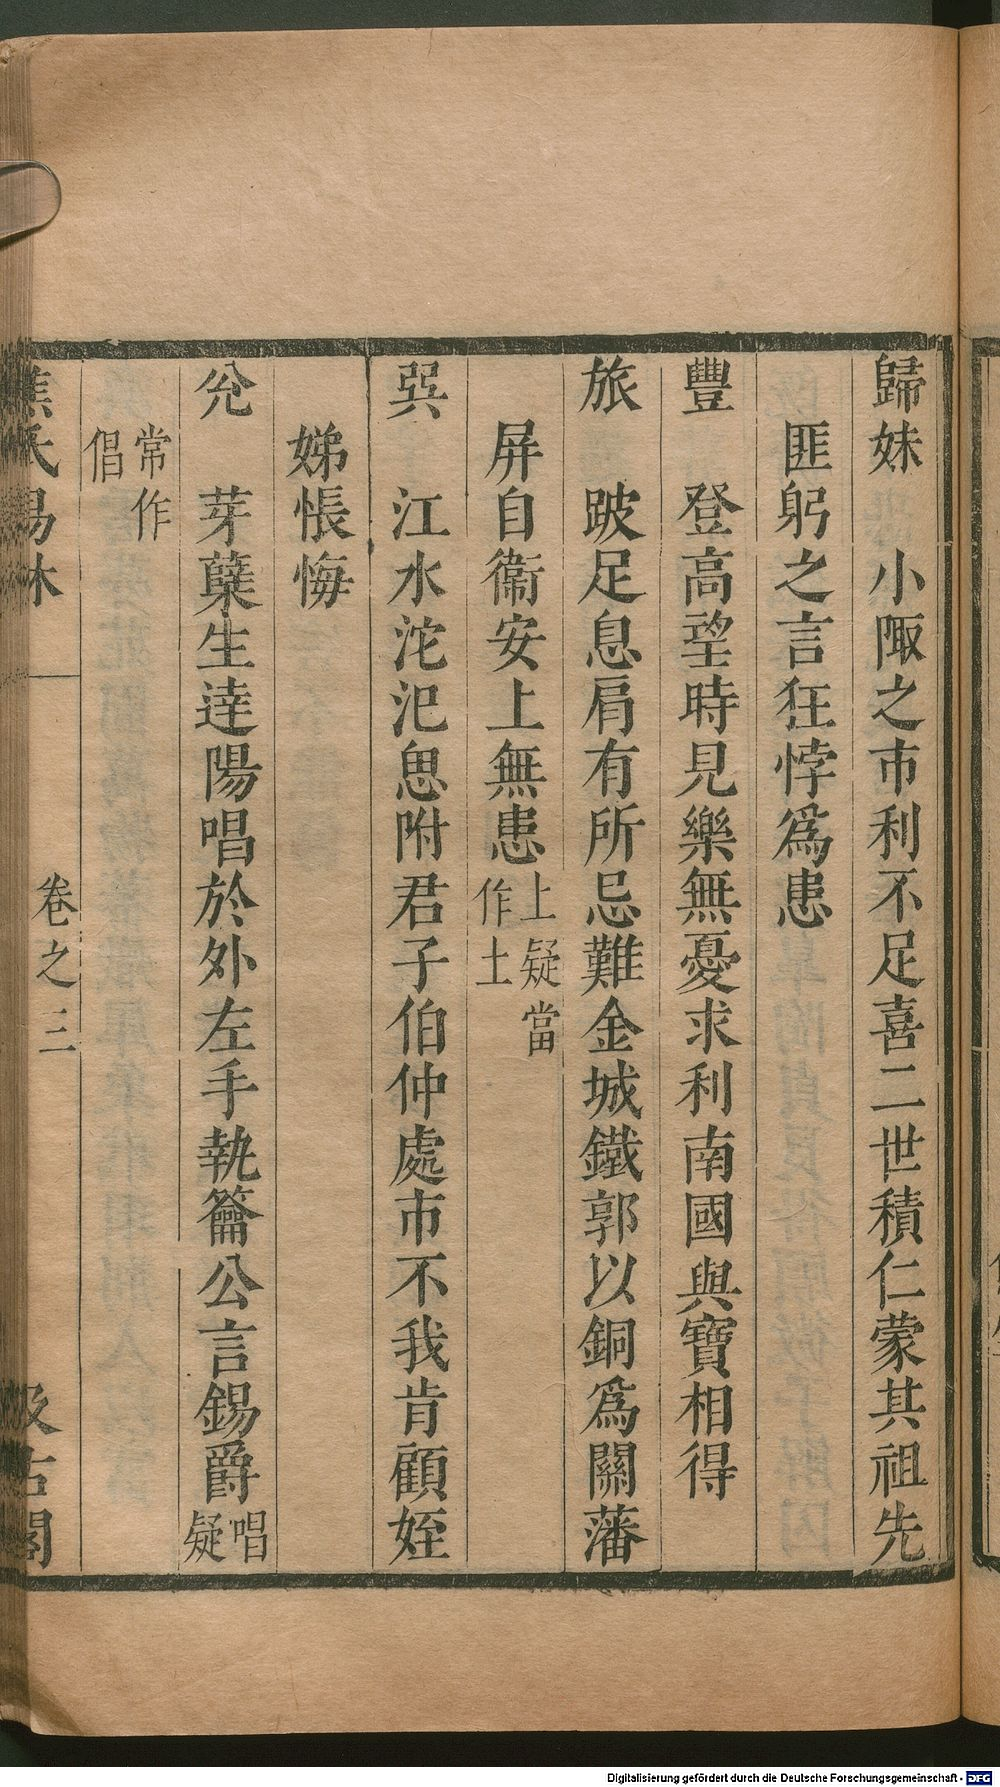 歸妹 小陬之市利不足喜二世積仁蒙其祖先
匪躬之言狂悖爲患
豐 登高望時見樂無憂求利南國與寶相得
旅 跛足息肩有所忌難金城鐵郭以銅爲關藩
屏自衞安上無患上疑當
作土
巺 江水沱汜思附君子伯仲處市不我肯顧姪
娣悵悔
兊 芽蘖生達陽唱於外左手執籥公言錫爵唱疑
常作
倡
焦氏易林 卷之三 汲古閣
Digitalisierung gefördert durch die Deutsche Forschungsgemeinschaft - DFG